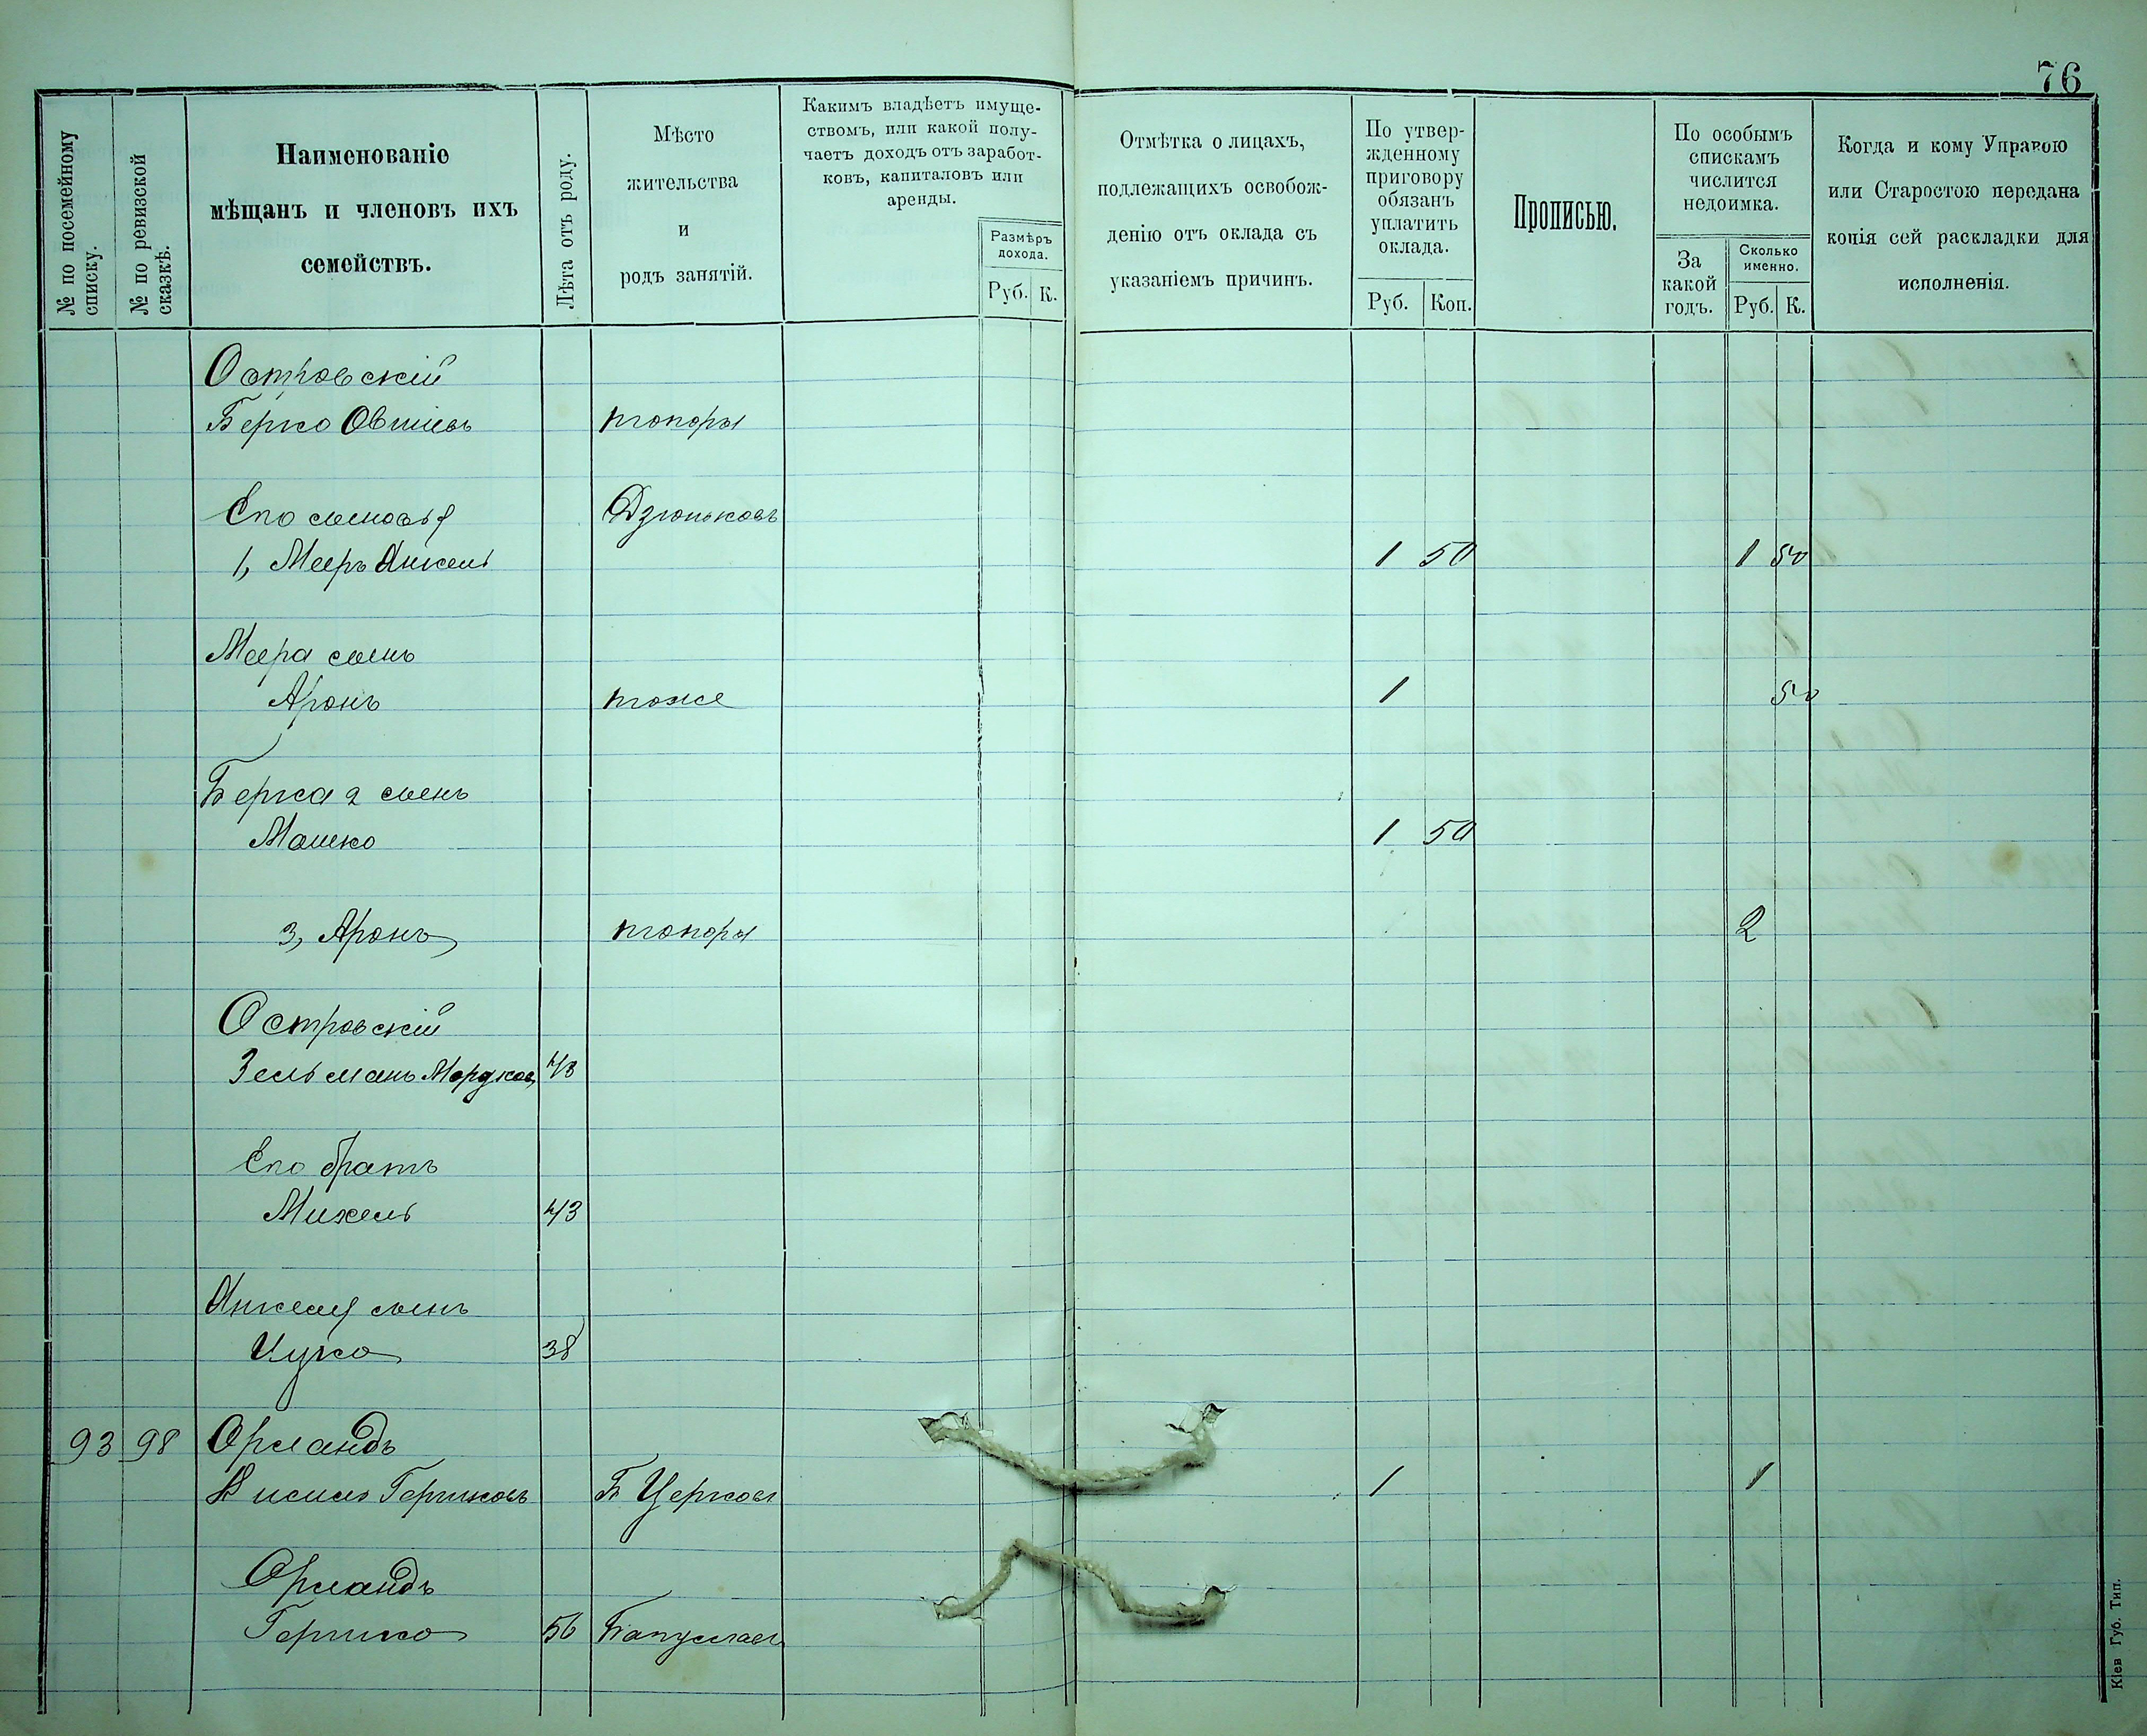 76
№ по посемейному списку.
№ по ревизской сказкѣ.
Наименованіе
мѣщанъ и членовъ ихъ
семействъ.
Лѣта отъ роду.
Мѣсто
жительства
и
родъ занятій.
Какимъ владѣетъ имуще-
ствомъ, или какой полу-
чаетъ доходъ отъ заработ-
ковъ, капиталовъ или
аренды.
Размѣръ
дохода.
Руб. К.
Отмѣтка о лицахъ,
подлежащихъ освобож-
денію отъ оклада съ
указаніемъ причинъ.
По утвер-
жденному
приговору
обязанъ
уплатить
оклада.
Руб. Коп.
Прописью.
По особымъ
спискамъ
числится
недоимка.
За
какой
годъ.
Сколько
именно.
Руб. К.
Когда и кому Управою
или Старостою передана
копія сей раскладки для
исполненія.
Островскій
Берко Овшіевъ топоры
Его сыновья Дзюньковъ
1, Мееръ Анкель 1 50 1 50
Меера сынъ
Аронъ тоже 1 50
Берка 2 сынъ
Мошко 1 50
3, Аронъ топоры 2
Островскій
Зельманъ Мордков 48
Его братъ
Михель 43
Анкеля сынъ
Ицко 38
93 98 Орландъ
Кисиль Гершковъ Б Церковь 1 1
Орландъ
Гершко 56
Кіев Губ. Тип.